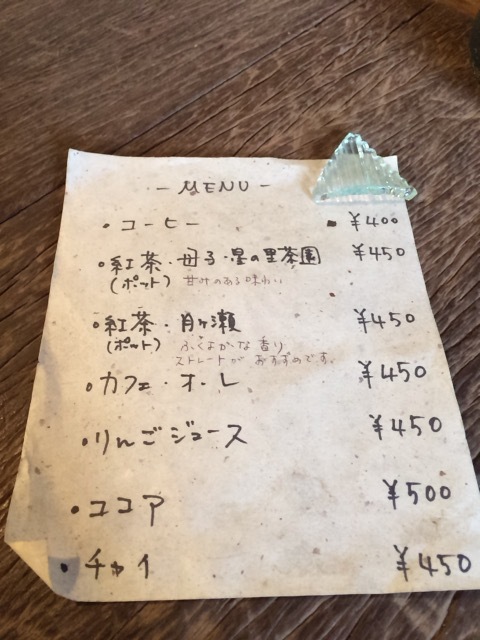 - MENU -
・コーヒー ¥400
・紅茶・母子・星の里茶園 ¥450
(ポット) 甘みのある味わい
・紅茶・月ヶ瀬 ¥450
(ポット) ふくよかな香り
ストレートがおすすめです。
・カフェ・オ・レ ¥450
・りんごジュース ¥450
・ココア ¥500
・チャイ ¥450